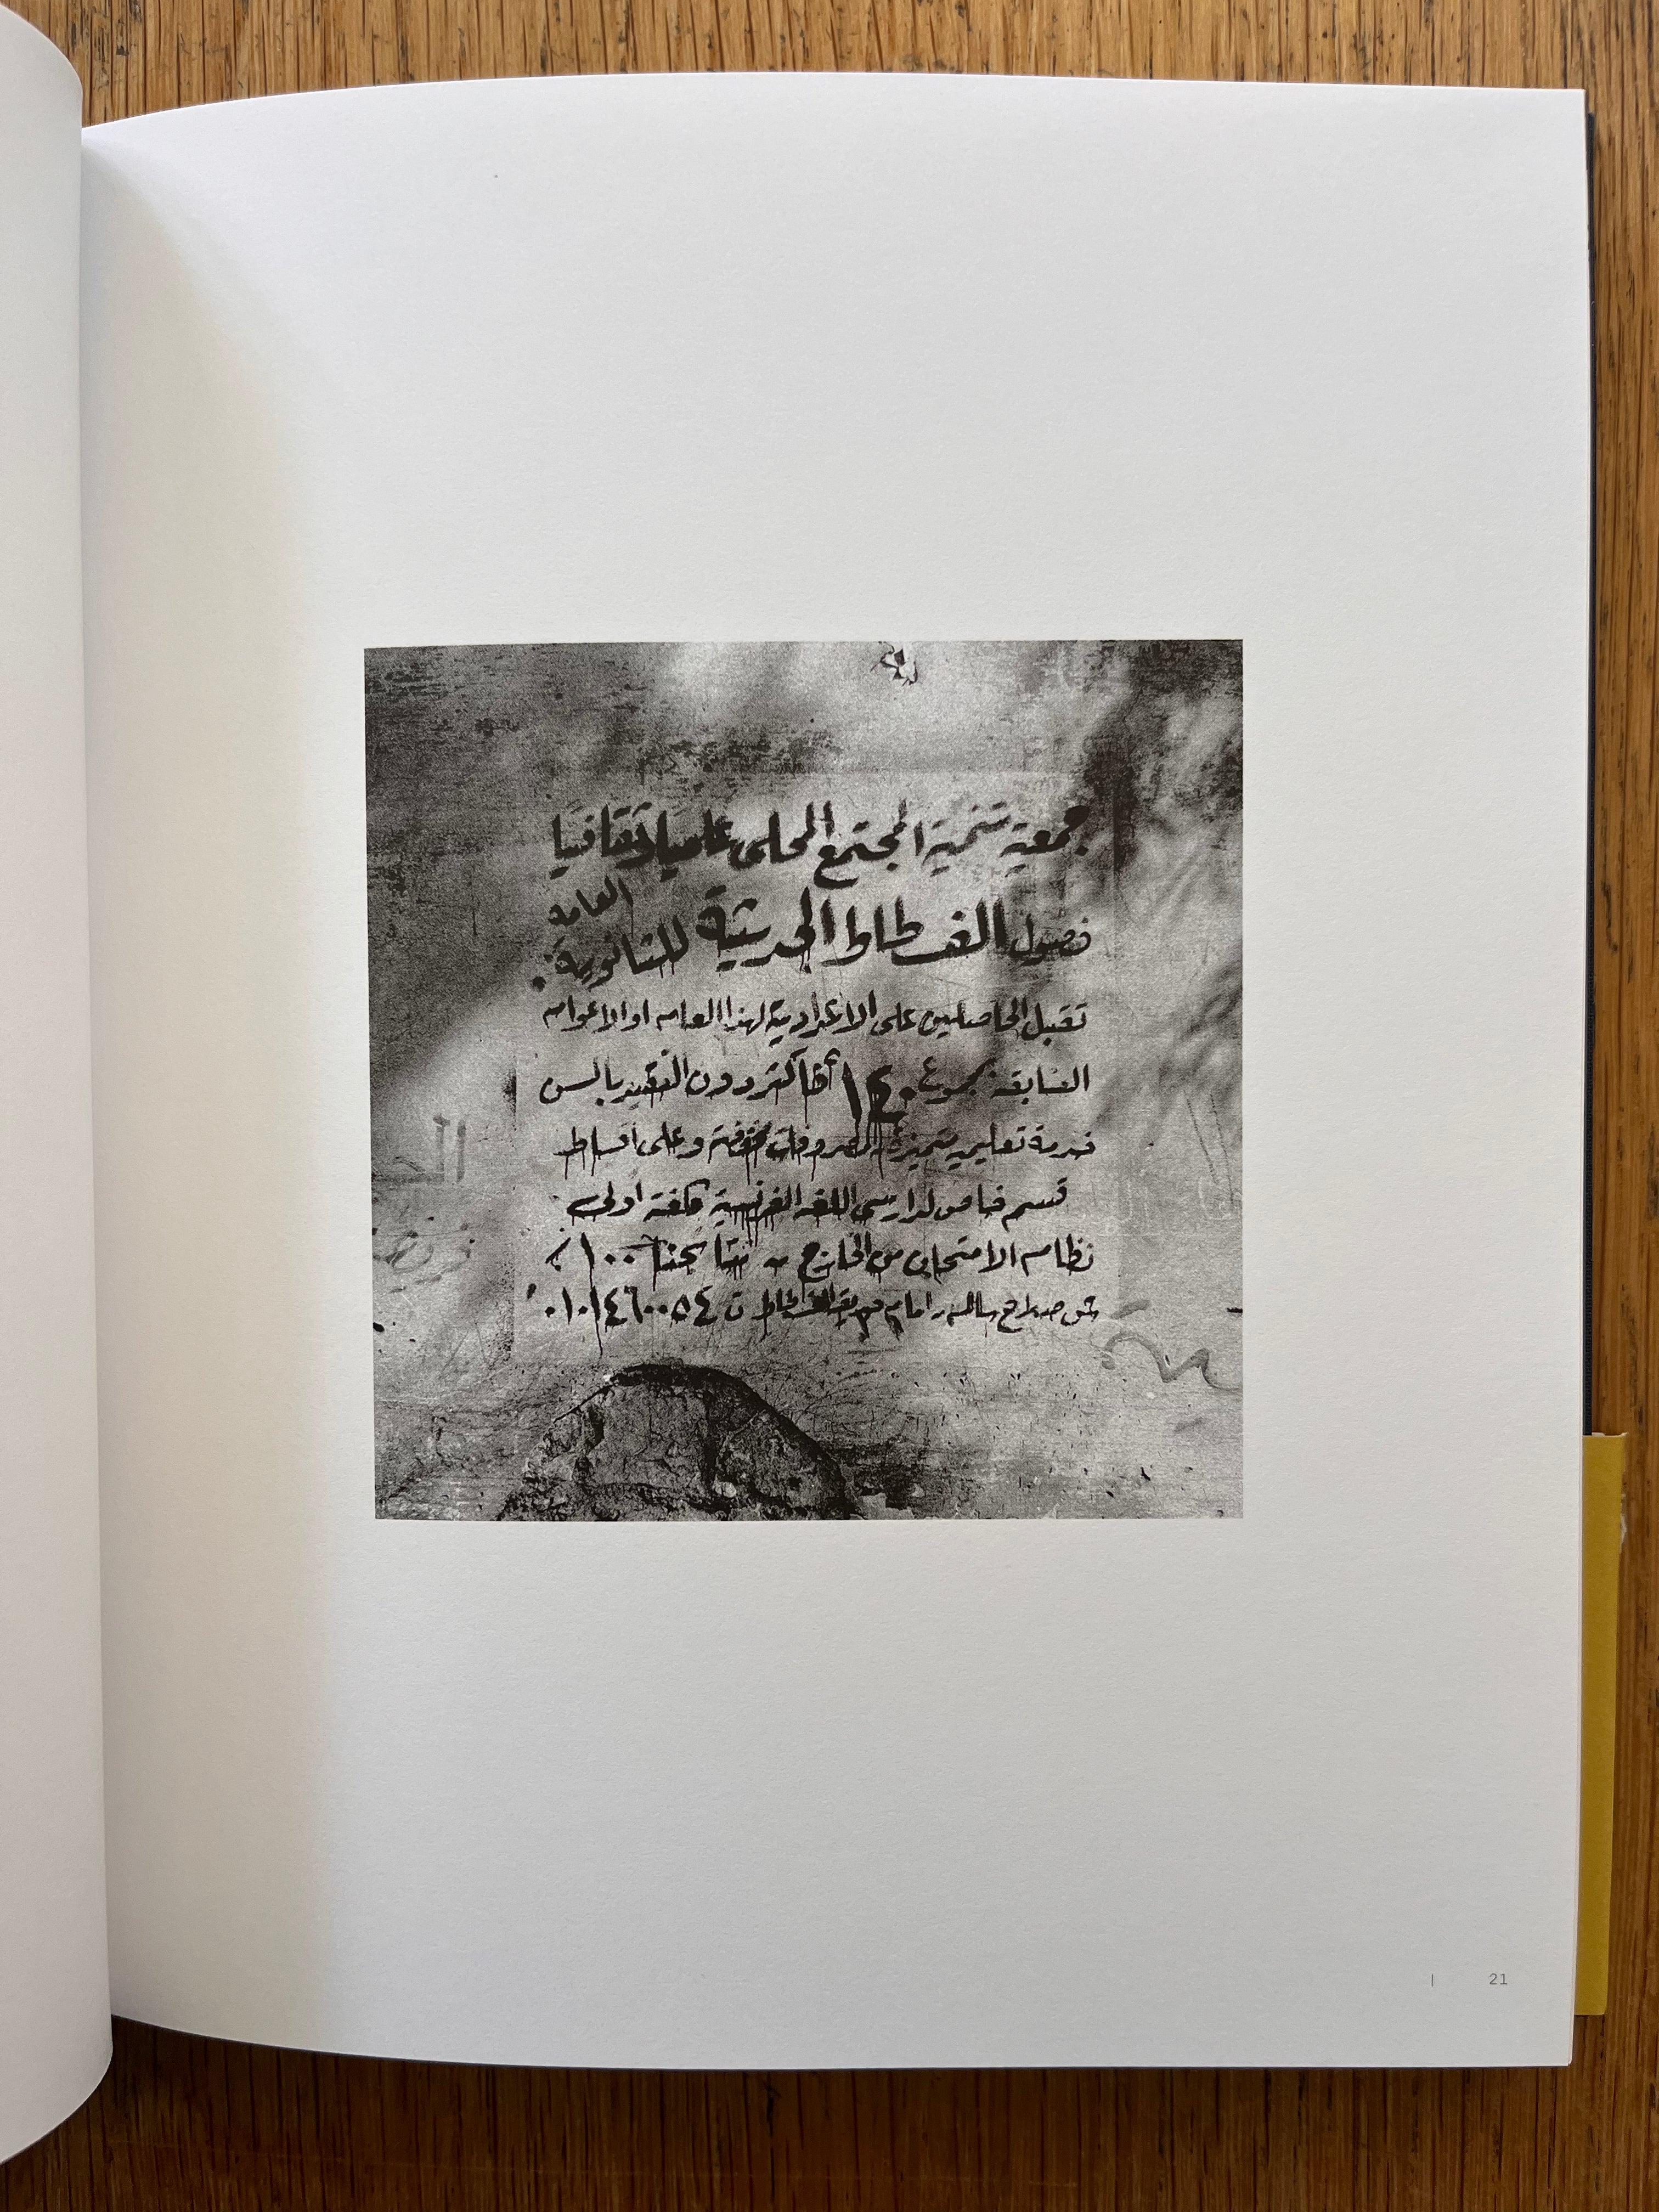 جمعية تنمية المجتمع المحلى علميًا وثقافيًا
فصول الفسطاط الحديثة للثانوية العامة
تقبل الحاصلين على الاعدادية لهذا العام او الاعوام
السابقة بمجموع ١٤٠ فأكثر دون التقيد بالسن
خدمة تعليمية متميزة بمصروفات مخفضة وعلى اقساط
قسم خاص لدارسى اللغة الفرنسية كلغة اولى
نظام الامتحان من الخارج - نتائجنا ١٠٠٪
ش صلاح سالم امام حديقة الفسطاط ت ٠١٠١٤٦٠٠٥٤
21